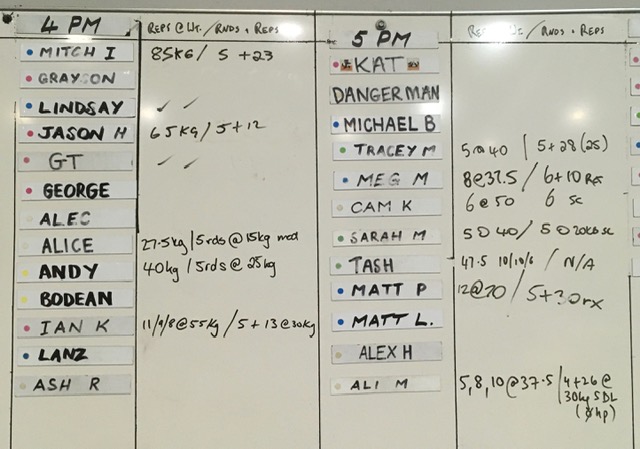 4 PM REPS @ WT. / RNDS + REPS
MITCH I 85KG / 5 +23
GRAYSON
LINDSAY ✓ ✓
JASON H 65KG / 5+12
GT ✓ ✓
GEORGE
ALEC
ALICE 27.5kg / 5rds @ 15kg mod
ANDY 40kg / 5rds @ 25kg
BODEAN
IAN K 11/9/8@55kg / 5 + 13 @30kg
LANZ
ASH R
5 PM / RNDS + REPS
KAT
DANGERMAN
MICHAEL B
TRACEY M 5@40 / 5+28 (25)
MEG M 8@37.5 / 6+10 Rx
CAM K 6@50 6 sc
SARAH M 5@40 / 5@20KB sc
TASH 47.5 10/10/6 / N/A
MATT P 12@70 / 5+30rx
MATT L.
ALEX H
ALI M 5,8,10@37.5 / 4+26@
30kg SDL